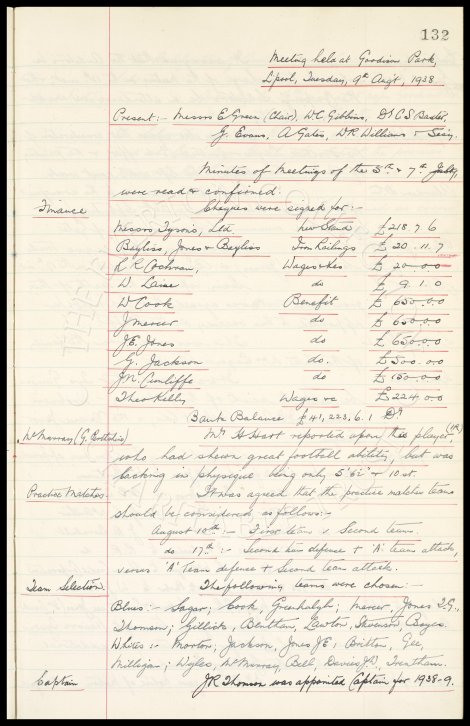 132
Meeting held at Goodison Park,
L'pool, Tuesday, 9th Augt, 1938
Present:- Messrs E Green (Chair), W.C. Gibbins, Dr C S Baxter,
G. Evans, A Gates, W R Williams & Secy.
Minutes of Meetings of the 5th & 7th July,
were read & confirmed.
Finance Cheques were signed for:-
Messrs Tysons, Ltd, New Stand £218. 7. 6
Bayliss, Jones & Bayliss Iron Railings £20. 11. 7
R R Cochran, Wages £20. 0. 0
W Laine do £9. 1. 0
W Cook Benefit £650. 0. 0
J Mercer do £650. 0. 0
J.E. Jones do £650. 0. 0
G. Jackson do. £500. 0. 0
J.N. Cunliffe do £150. 0. 0
Theo Kelly Wages &c £224. 0. 0
Bank Balance £41,223. 6. 1 Dr
McMurray (G. Celtic) Mr H Hart reported upon this player,
who had shewn great football ability, but was
lacking in physique being only 5' 6½" & 10 st.
Practice Matches. It was agreed that the practice matches teams
should be considered as follows:-
August 10th:- First team v Second team.
do 17th:- Second team defence & 'A' team attack,
versus 'A' team defence & Second team attack.
Team Selection. The following teams were chosen:-
Blues:- Sagar; Cook, Greenhalgh; Mercer, Jones T.G.,
Thomson; Gillick, Bentham, Lawton, Stevenson, Boyes.
Whites:- Morton; Jackson, Jones J E; Britton, Gee,
Milligan; Wyles, McMurray, Bell, Davies J., Trentham.
Captain J R Thomson was appointed Captain for 1938-9.